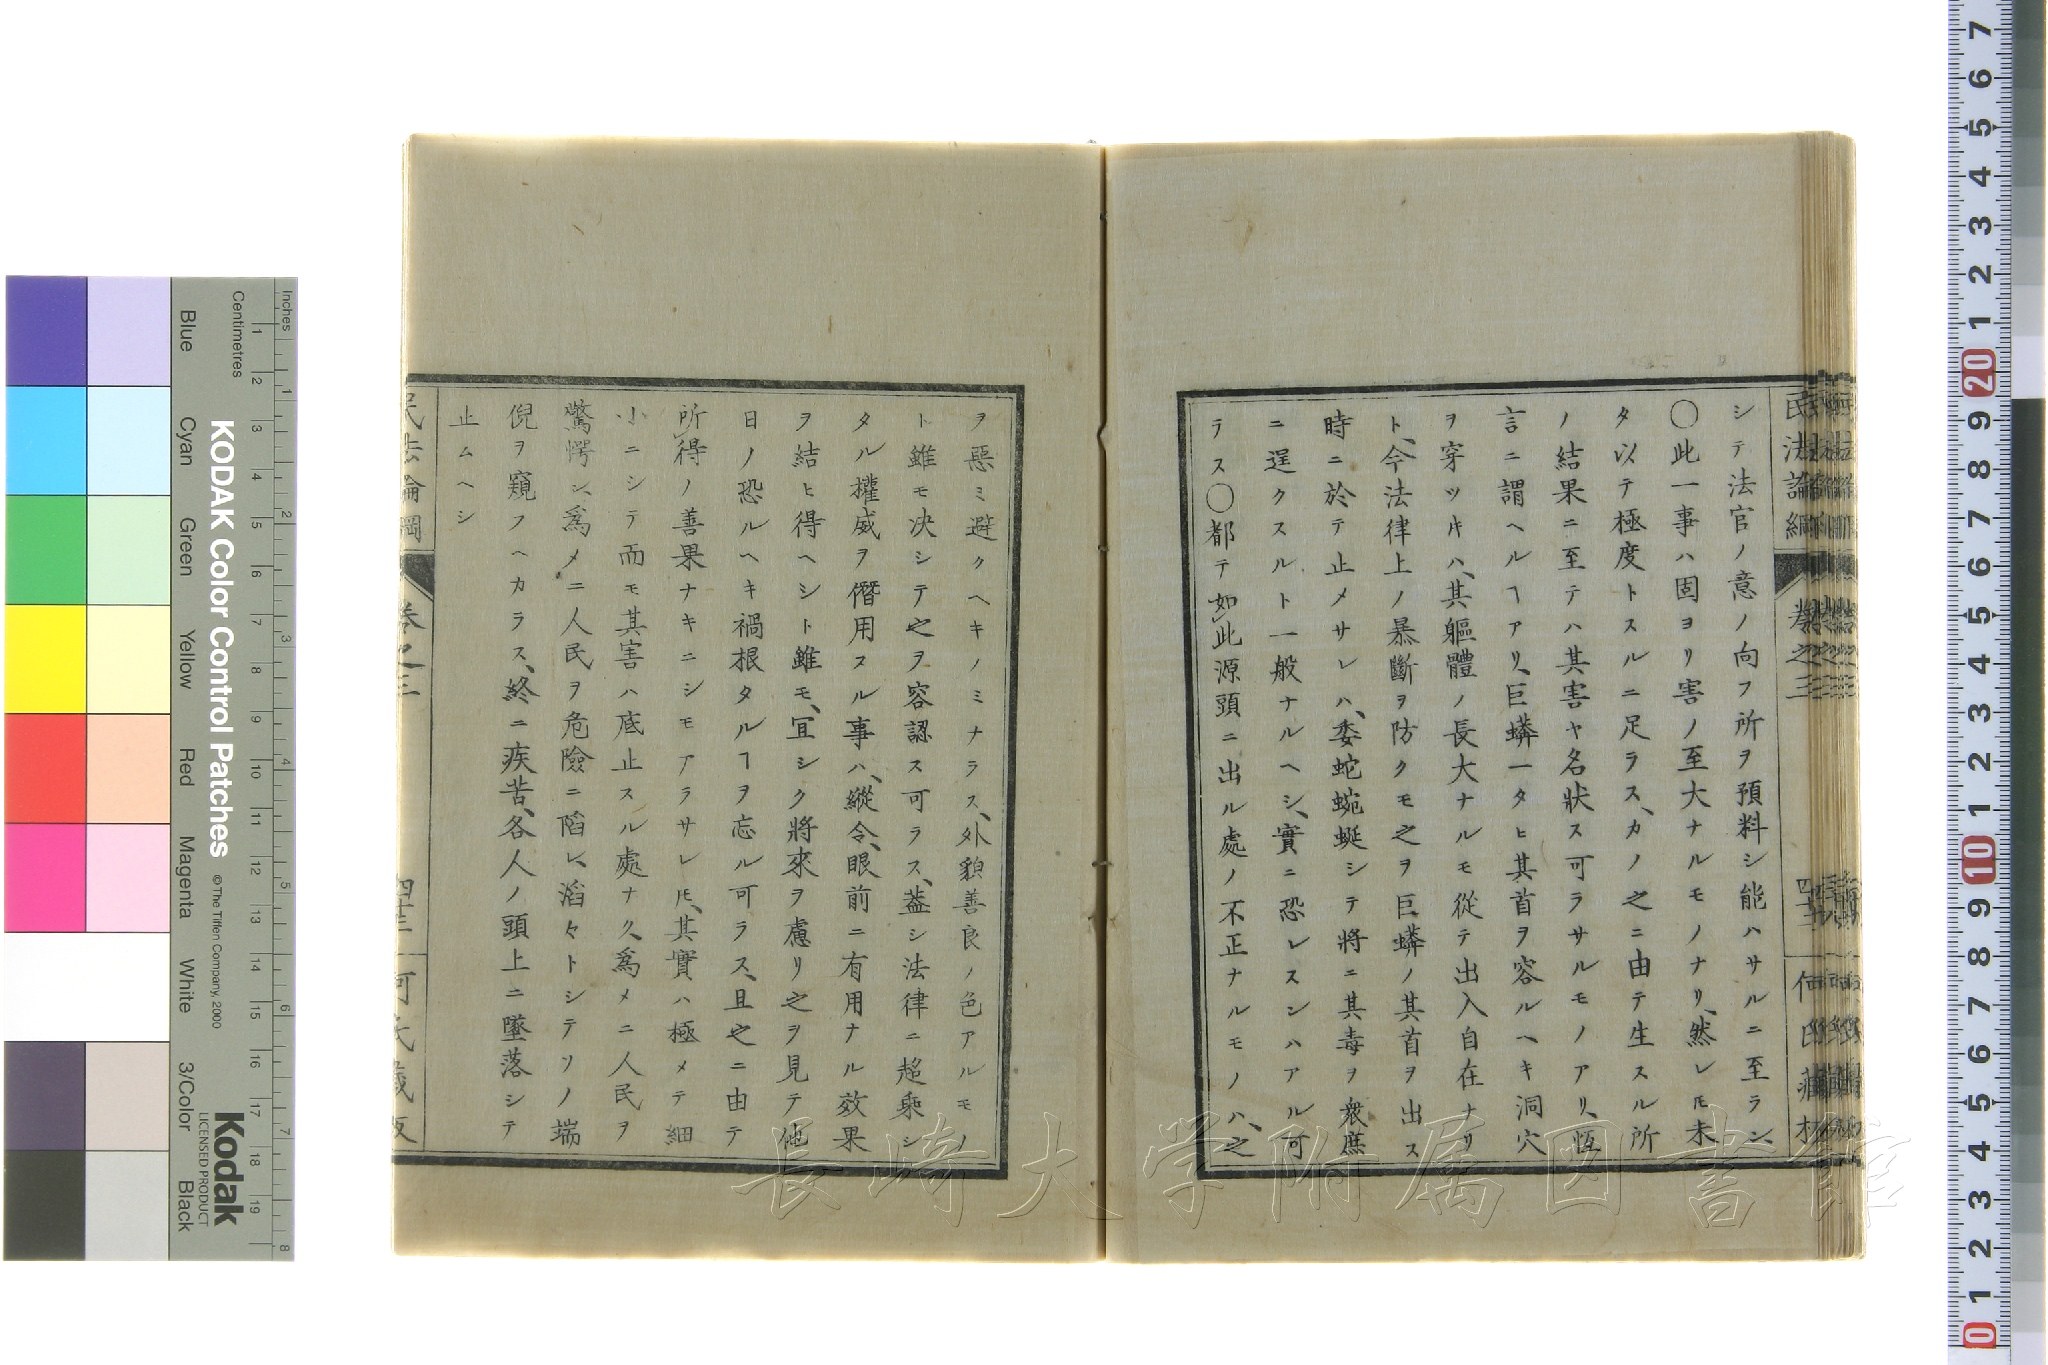 シテ法官ノ意ノ向フ所ヲ預料シ能ハサルニ至ラン、
〇此一事ハ固ヨリ害ノ至大ナルモノナリ、然レ𪜈未
タ以テ極度トスルニ足ラス、カノ之ニ由テ生スル所
ノ結果ニ至テハ其害ヤ名狀ス可ラサルモノアリ、恆
言ニ謂ヘルヿアリ、巨蟒一タヒ其首ヲ容ルヘキ洞穴
ヲ穿ツ片ハ、其軀體ノ長大ナルモ從テ出入自在ナリ
ト、今法律上ノ暴斷ヲ防クモ之ヲ巨蟒ノ其首ヲ出ス
時ニ於テ止メサレハ、委蛇蜿蜒シテ將ニ其毒ヲ衆庶
ニ逞クスルト一般ナルヘシ、實ニ恐レスンハアル可
ラス〇都テ如此源頭ニ出ル處ノ不正ナルモノハ、之
民法論綱 卷之三 四十二 何氏藏板
ヲ惡ミ避クヘキノミナラス、外貌善良ノ色アルモノ
ト雖モ决シテ之ヲ容認ス可ラス、蓋シ法律ニ超乘シ
タル權威ヲ僭用スル事ハ、縱令、眼前ニ有用ナル效果
ヲ結ヒ得ヘシト雖モ、宜シク將來ヲ慮リ之ヲ見テ他
日ノ恐ルヘキ禍根タルヿヲ忘ル可ラス、且之ニ由テ
所得ノ善果ナキニシモアラサレ𪜈、其實ハ極メテ細
小ニシテ而モ其害ハ底止スル處ナク、爲メニ人民ヲ
驚愕シ、爲メニ人民ヲ危險ニ陷レ、滔々トシテソノ端
倪ヲ窺フヘカラス、終ニ疾苦、各人ノ頭上ニ墜落シテ
止ムヘシ
民法論綱 卷之三 四十三 何氏藏板
長崎大学附属図書館
KODAK Color Control Patches
© The Tiffen Company, 2000
Kodak
LICENSED PRODUCT
Inches
Centimetres
Blue
Cyan
Green
Yellow
Red
Magenta
White
3/Color
Black